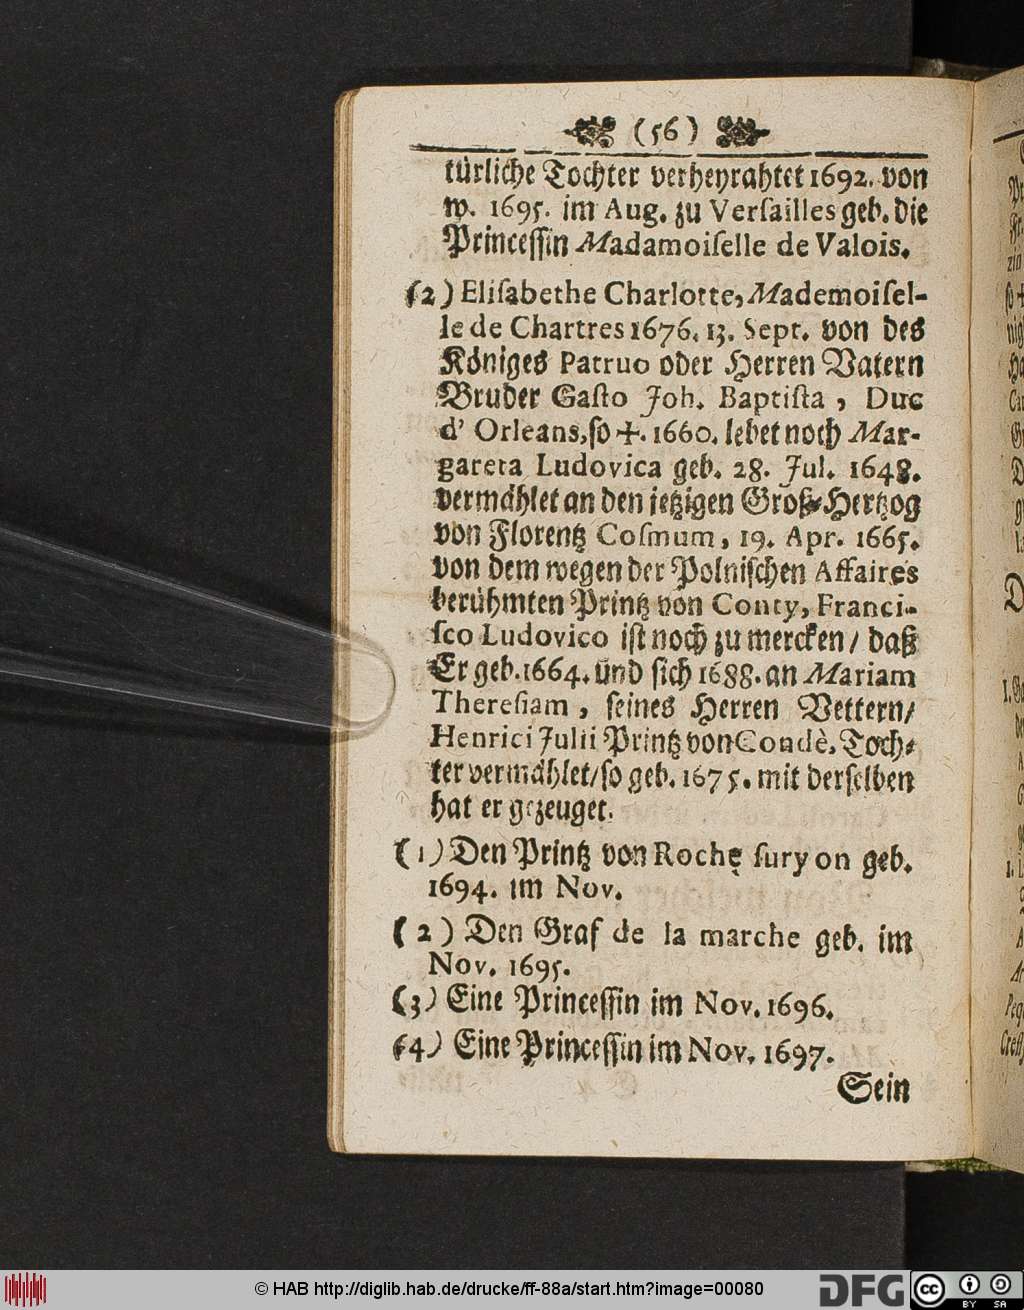 (56)
türliche Tochter verheyrahtet 1692. von
w. 1695. im Aug. zu Verſailles geb. die
Princeſſin Madamoiſelle de Valois.
(2) Eliſabethe Charlotte, Mademoiſel-
le de Chartres 1676. 13. Sept. von des
Königes Patruo oder Herren Vatern
Bruder Gaſto Joh. Baptiſta, Duc
d' Orleans, ſo ✝. 1660. lebet noch Mar-
gareta Ludovica geb. 28. Jul. 1648.
vermählet an den jetzigen Groß-Hertzog
von Florentz Coſmum, 19. Apr. 1665.
von dem wegen der Polniſchen Affaires
berühmten Printz von Conty, Franci-
ſco Ludovico iſt noch zu mercken/ daß
Er geb. 1664. und ſich 1688. an Mariam
Thereſiam, ſeines Herren Vettern/
Henrici Julii Printz von Condè, Toch-
ter vermählet/ ſo geb. 1675. mit derſelben
hat er gezeuget.
(1) Den Printz von Roche ſuryon geb.
1694. im Nov.
(2) Den Graf de la marche geb. im
Nov. 1695.
(3) Eine Princeſſin im Nov. 1696.
(4) Eine Princeſſin im Nov. 1697.
Sein
© HAB http://diglib.hab.de/drucke/ff-88a/start.htm?image=00080
DFG
cc
BY SA